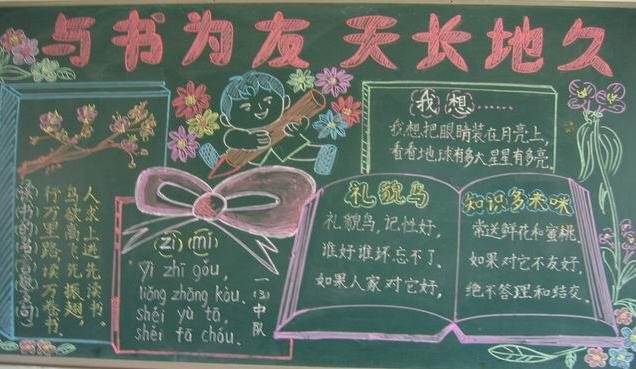 与书为友 天长地久
读书的名言警句
人求上进先读书.
鸟欲高飞先振翅,
行万里路读万卷书.
zì mí
Yì zhī gǒu,
liǎng zhāng kǒu.
shéi yù tā,
shéi fā chóu.
一(3)中队
我想……
我想把眼睛装在月亮上,
看看地球有多大星星有多亮.
礼貌鸟
礼貌鸟,记性好,
谁好谁坏忘不了.
如果人家对它好,
知识多来咪
常送鲜花和蜜桃.
如果对它不友好.
绝不答理和结交.